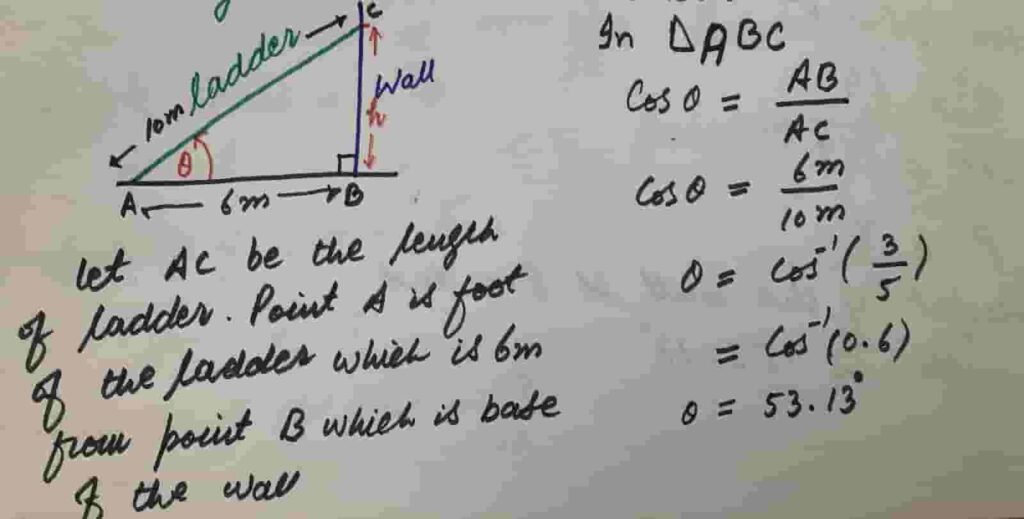 C
10m ladder
Wall
h
θ
A
6m
B
let AC be the length
of ladder. Point A is foot
of the ladder which is 6m
from point B which is base
of the wall
In △ABC
Cos θ = AB/AC
Cos θ = 6m/10m
θ = cos⁻¹(3/5)
= Cos⁻¹(0.6)
θ = 53.13°